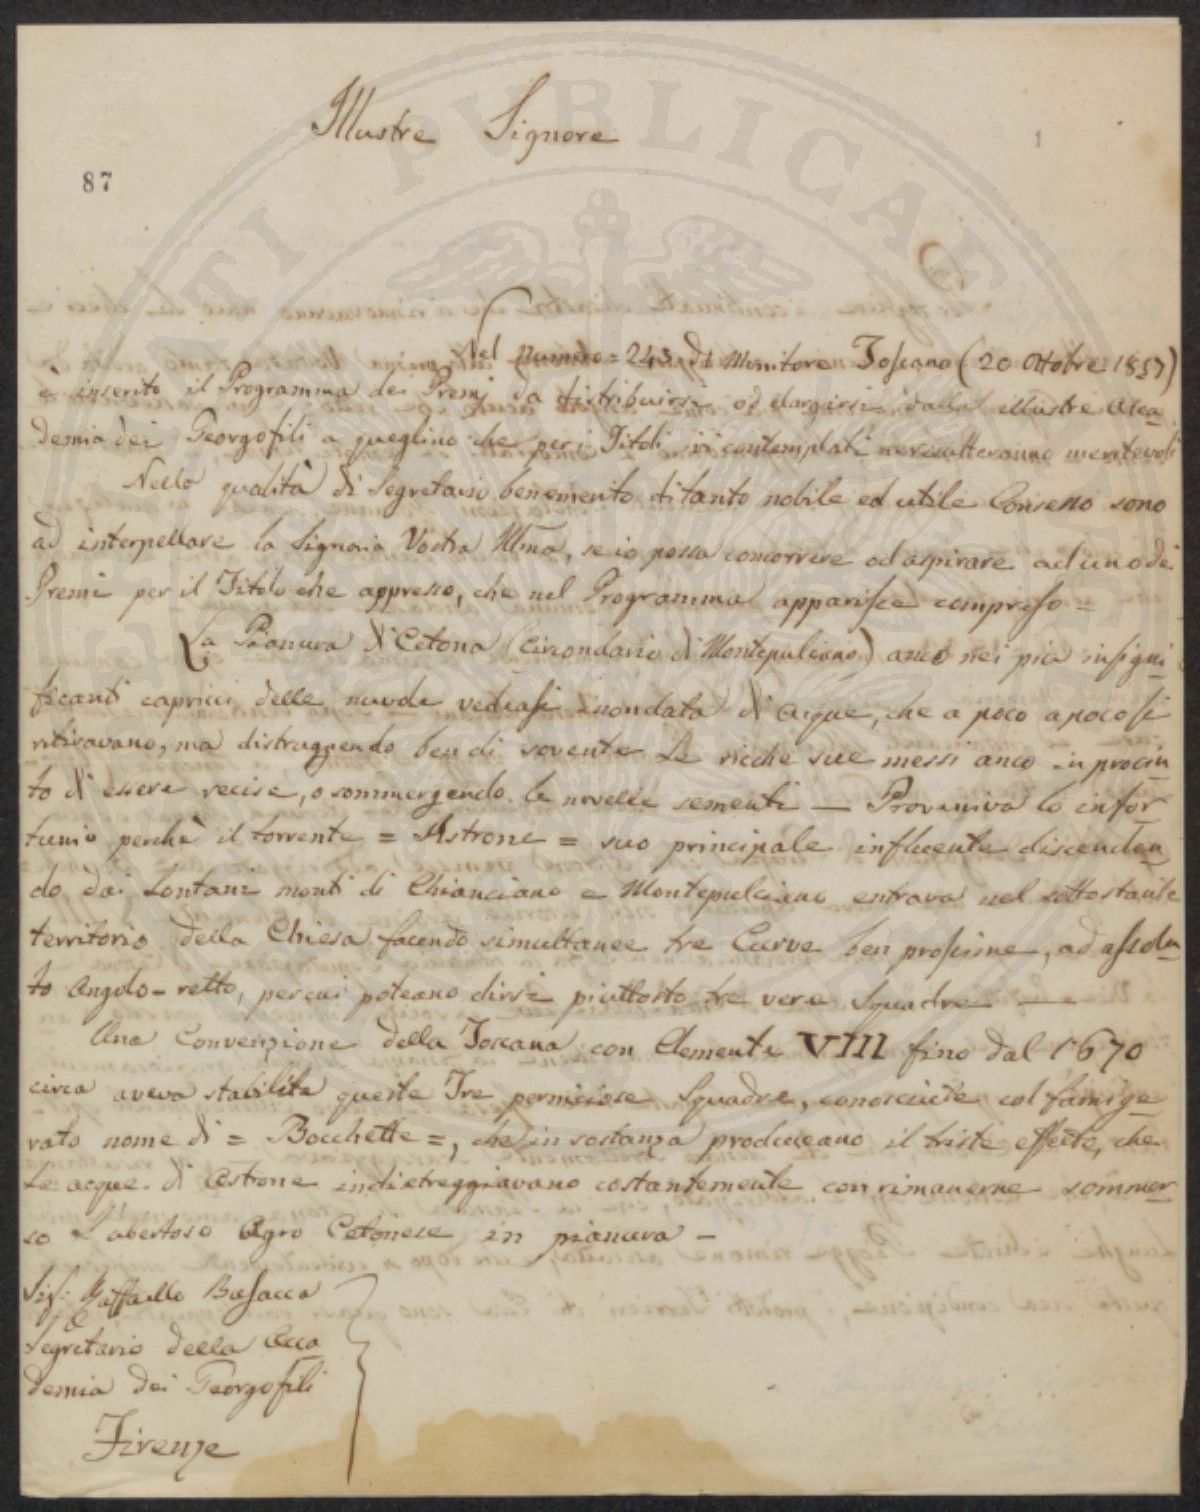 Illustre Signore
1
87
Nel Numero = 243 = di Monitore Toscano (20 Ottobre 1857)
è inserito il Programma dei Premj da distribuirsi od elargirsi dalla illustre Acca
demia dei Georgofili a queglino che per i Titoli ivi contemplati ne risulteranno meritevoli
Nella qualità di Segretario benemerito di tanto nobile ed utile Consesso sono
ad interpellare la Signoria Vostra Illma, se io possa concorrere od aspirare ad uno dei
Premi per il Titolo che appresso, che nel Programma apparisce compreso =
La Pianura di Cetona (Circondario di Montepulciano) anco nei più insigni
ficanti capricci delle nuvole vedeasi inondata di acque, che a poco a poco si
ritiravano, ma distruggendo ben di sovente le ricche sue messi anco in procin
to di essere recise, o sommergendo le novelle sementi — Proveniva lo infor
tunio perchè il torrente = Astrone = suo principale influente discenden
do dai lontani monti di Chianciano e Montepulciano entrava nel sottostante
territorio della Chiesa facendo simultanee tre Curve ben prossime, ad assolu
to angolo-retto, percui poteano dirsi piuttosto tre vere Squadre —
Una Convenzione della Toscana con Clemente VIII fino dal 1670
circa aveva stabilita queste Tre perniciose Squadre, conosciute col famige
rato nome di = Bocchette =, che in sostanza produceano il triste effetto, che
le acque di Astrone indietreggiavano costantemente con rimanerne sommer
so l'ubertoso Agro Cetonese in pianura –
Sig: Raffaello Busacca
Segretario della Acca
demia dei Georgofili
Firenze